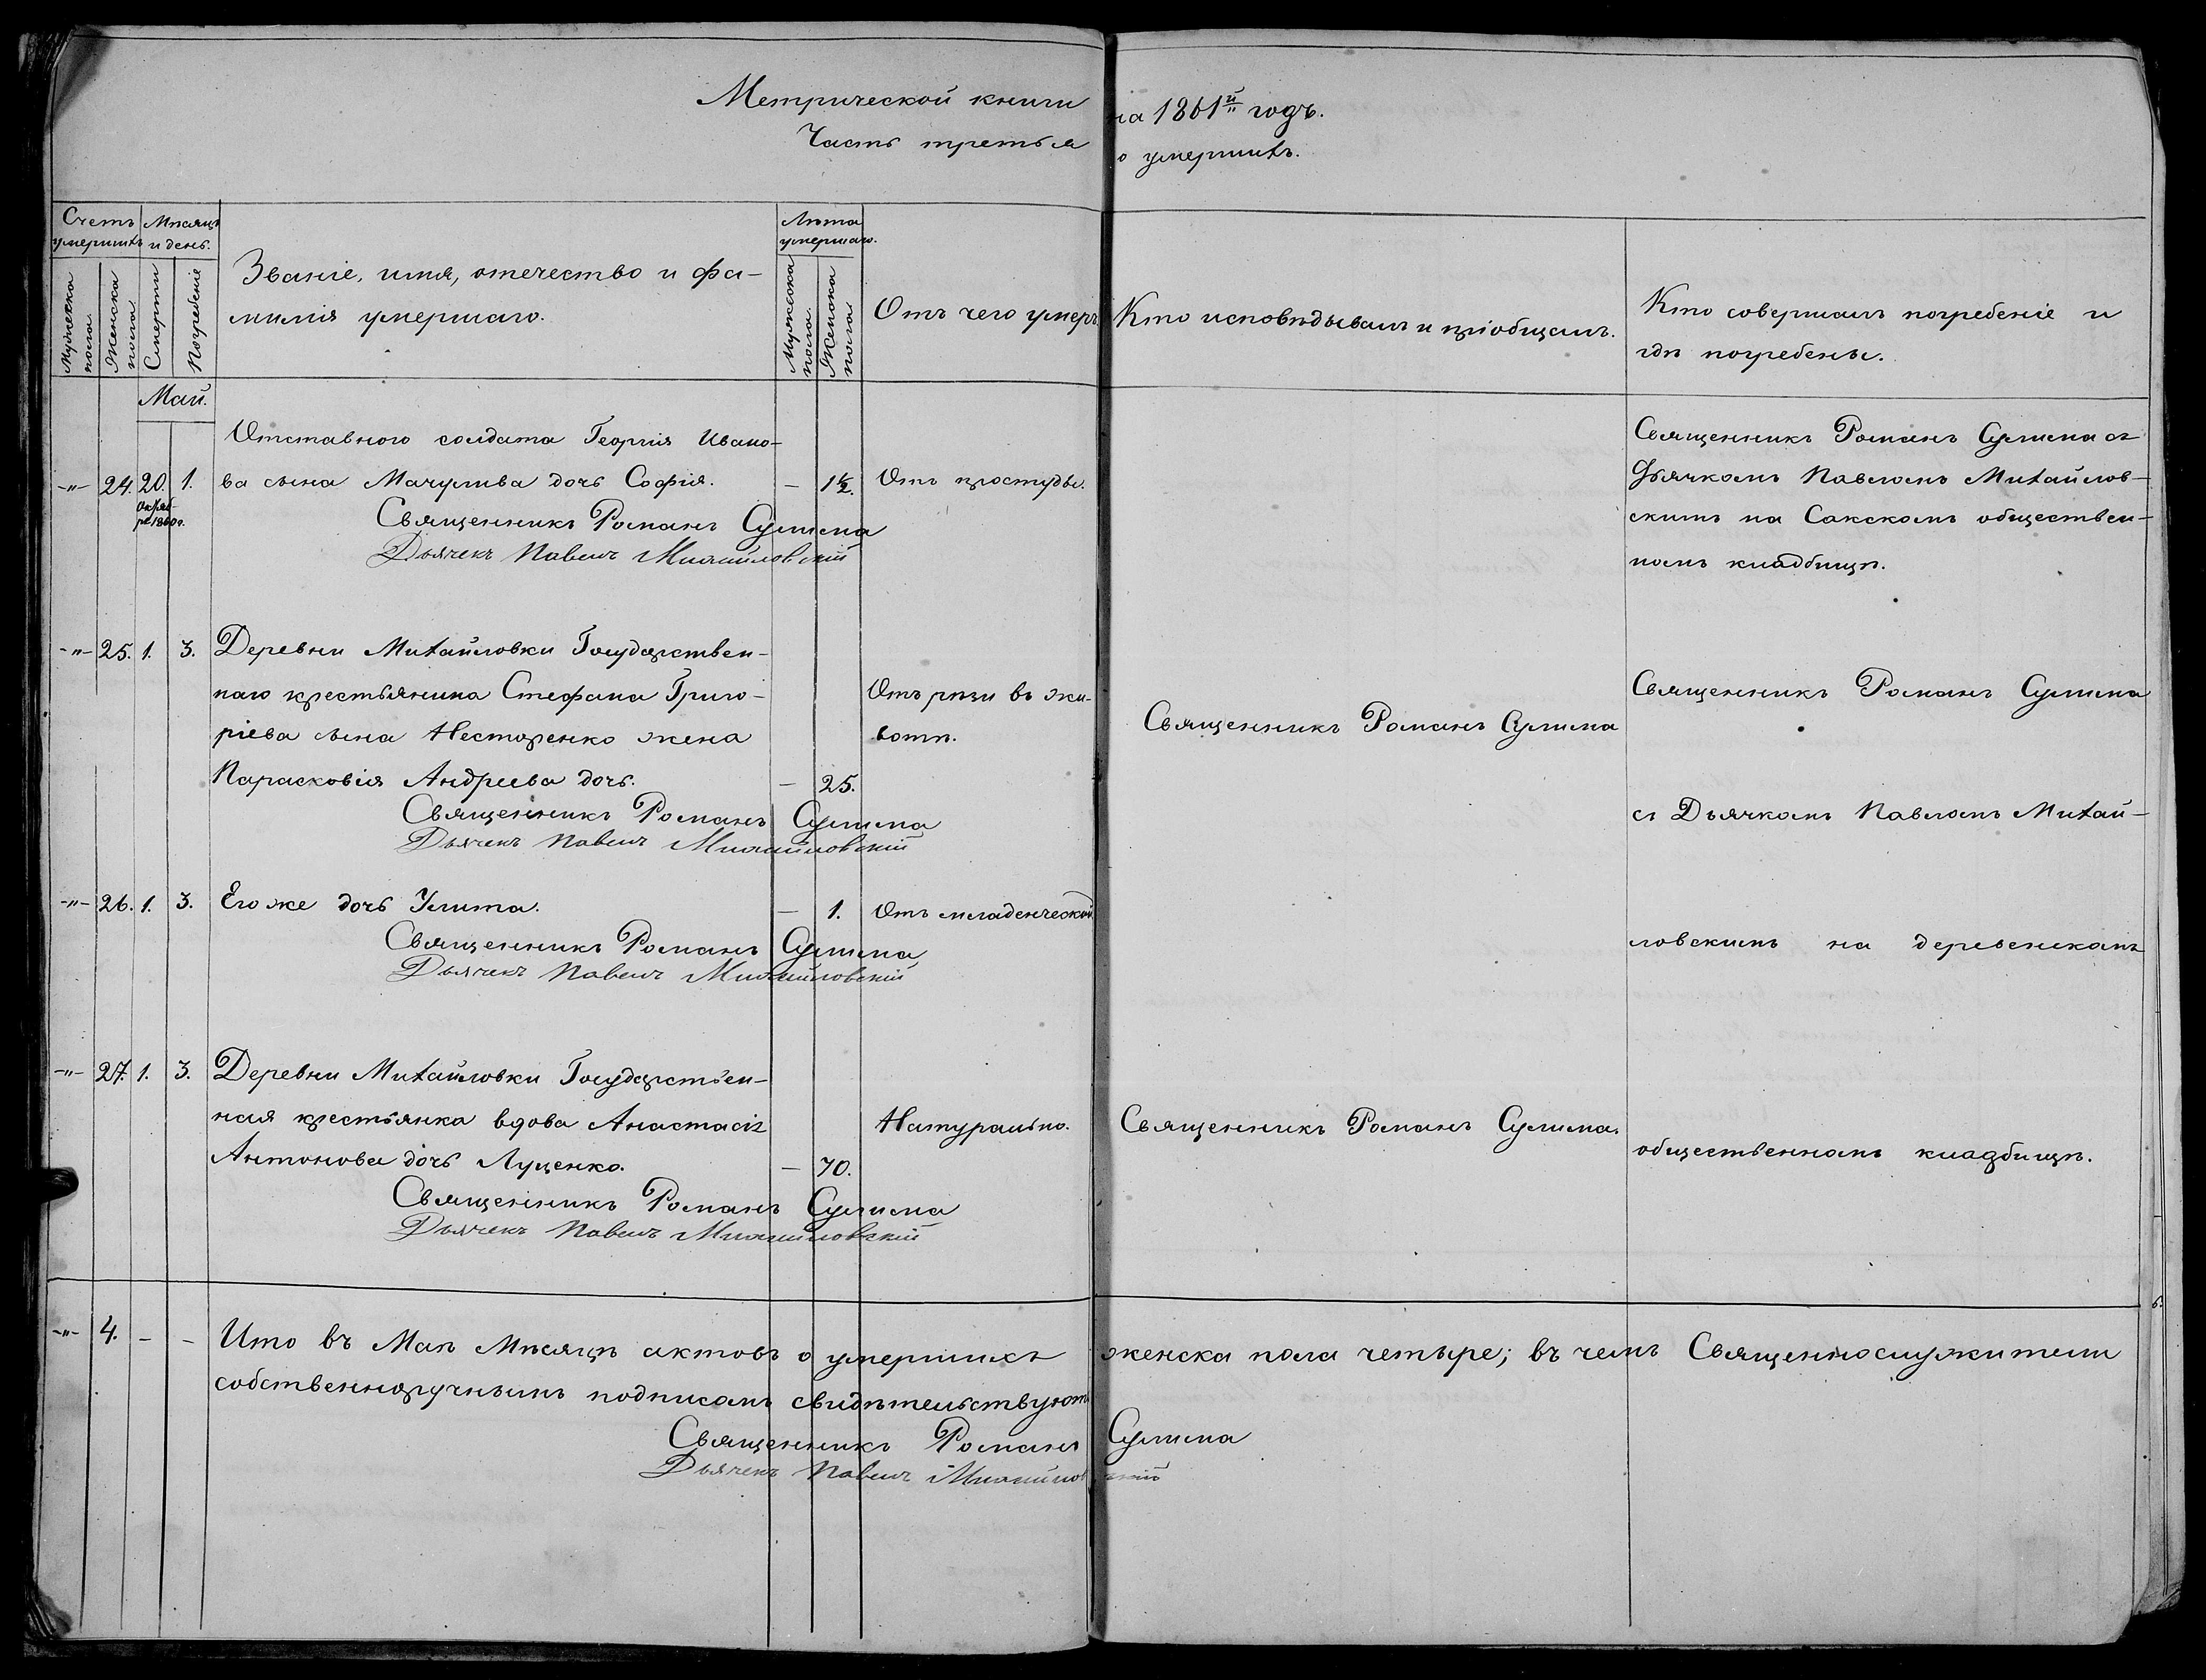 Метрической книги на 1861й годъ.
Часть третья о умершихъ.
Счетъ умершихъ
Мѣсяцъ и день.
Званіе, имя, отечество и фа-
милія умершаго.
Лѣта умершаго.
Отъ чего умеръ
Кто исповѣдывалъ и пріобщалъ.
Кто совершалъ погребеніе и
гдѣ погребены.
Мужеска пола
Женска пола
Смерти
Погребеніе
Мужеска пола.
Женска пола
Май.
Отставного солдата Георгія Ивано-
-"- 24. 20. 1. ва сына Мачулива дочь Софія. — 1½. Отъ простуды.
Октяб-
ря 1860г.
Священникъ Романъ Сулима
Дьячекъ Павелъ Михайловскій
Священникъ Романъ Сулима съ
Дьячкомъ Павломъ Михайлов-
скимъ на Сакскомъ обществен-
номъ кладбищѣ.
-"- 25. 1. 3. Деревни Михайловки Государствен-
наго крестьянина Стефана Григо-
ріева сына Нестеренко жена
Парасковія Андреева дочь. — 25.
Отъ рѣзи въ жи-
вотѣ.
Священникъ Романъ Сулима
Дьячекъ Павелъ Михайловскій
Священникъ Романъ Сулима
Священникъ Романъ Сулима
съ Дьячкомъ Павломъ Михай-
ловскимъ на деревенскомъ
общественномъ кладбищѣ.
-"- 26. 1. 3. Его же дочь Улита. — 1. Отъ младенческой
Священникъ Романъ Сулима
Дьячекъ Павелъ Михайловскій
-"- 27. 1. 3. Деревни Михайловки Государствен-
ная крестьянка вдова Анастасія
Антонова дочь Луценко. — 70.
Натурально.
Священникъ Романъ Сулима.
Священникъ Романъ Сулима
Дьячекъ Павелъ Михайловскій
-"- 4. - - Итого въ Маѣ Мѣсяцѣ актовъ о умершихъ женска пола четыре; въ чемъ Священнослужители
собственноручнымъ подписомъ свидѣтельствуютъ
Священникъ Романъ Сулима
Дьячекъ Павелъ Михайловскій